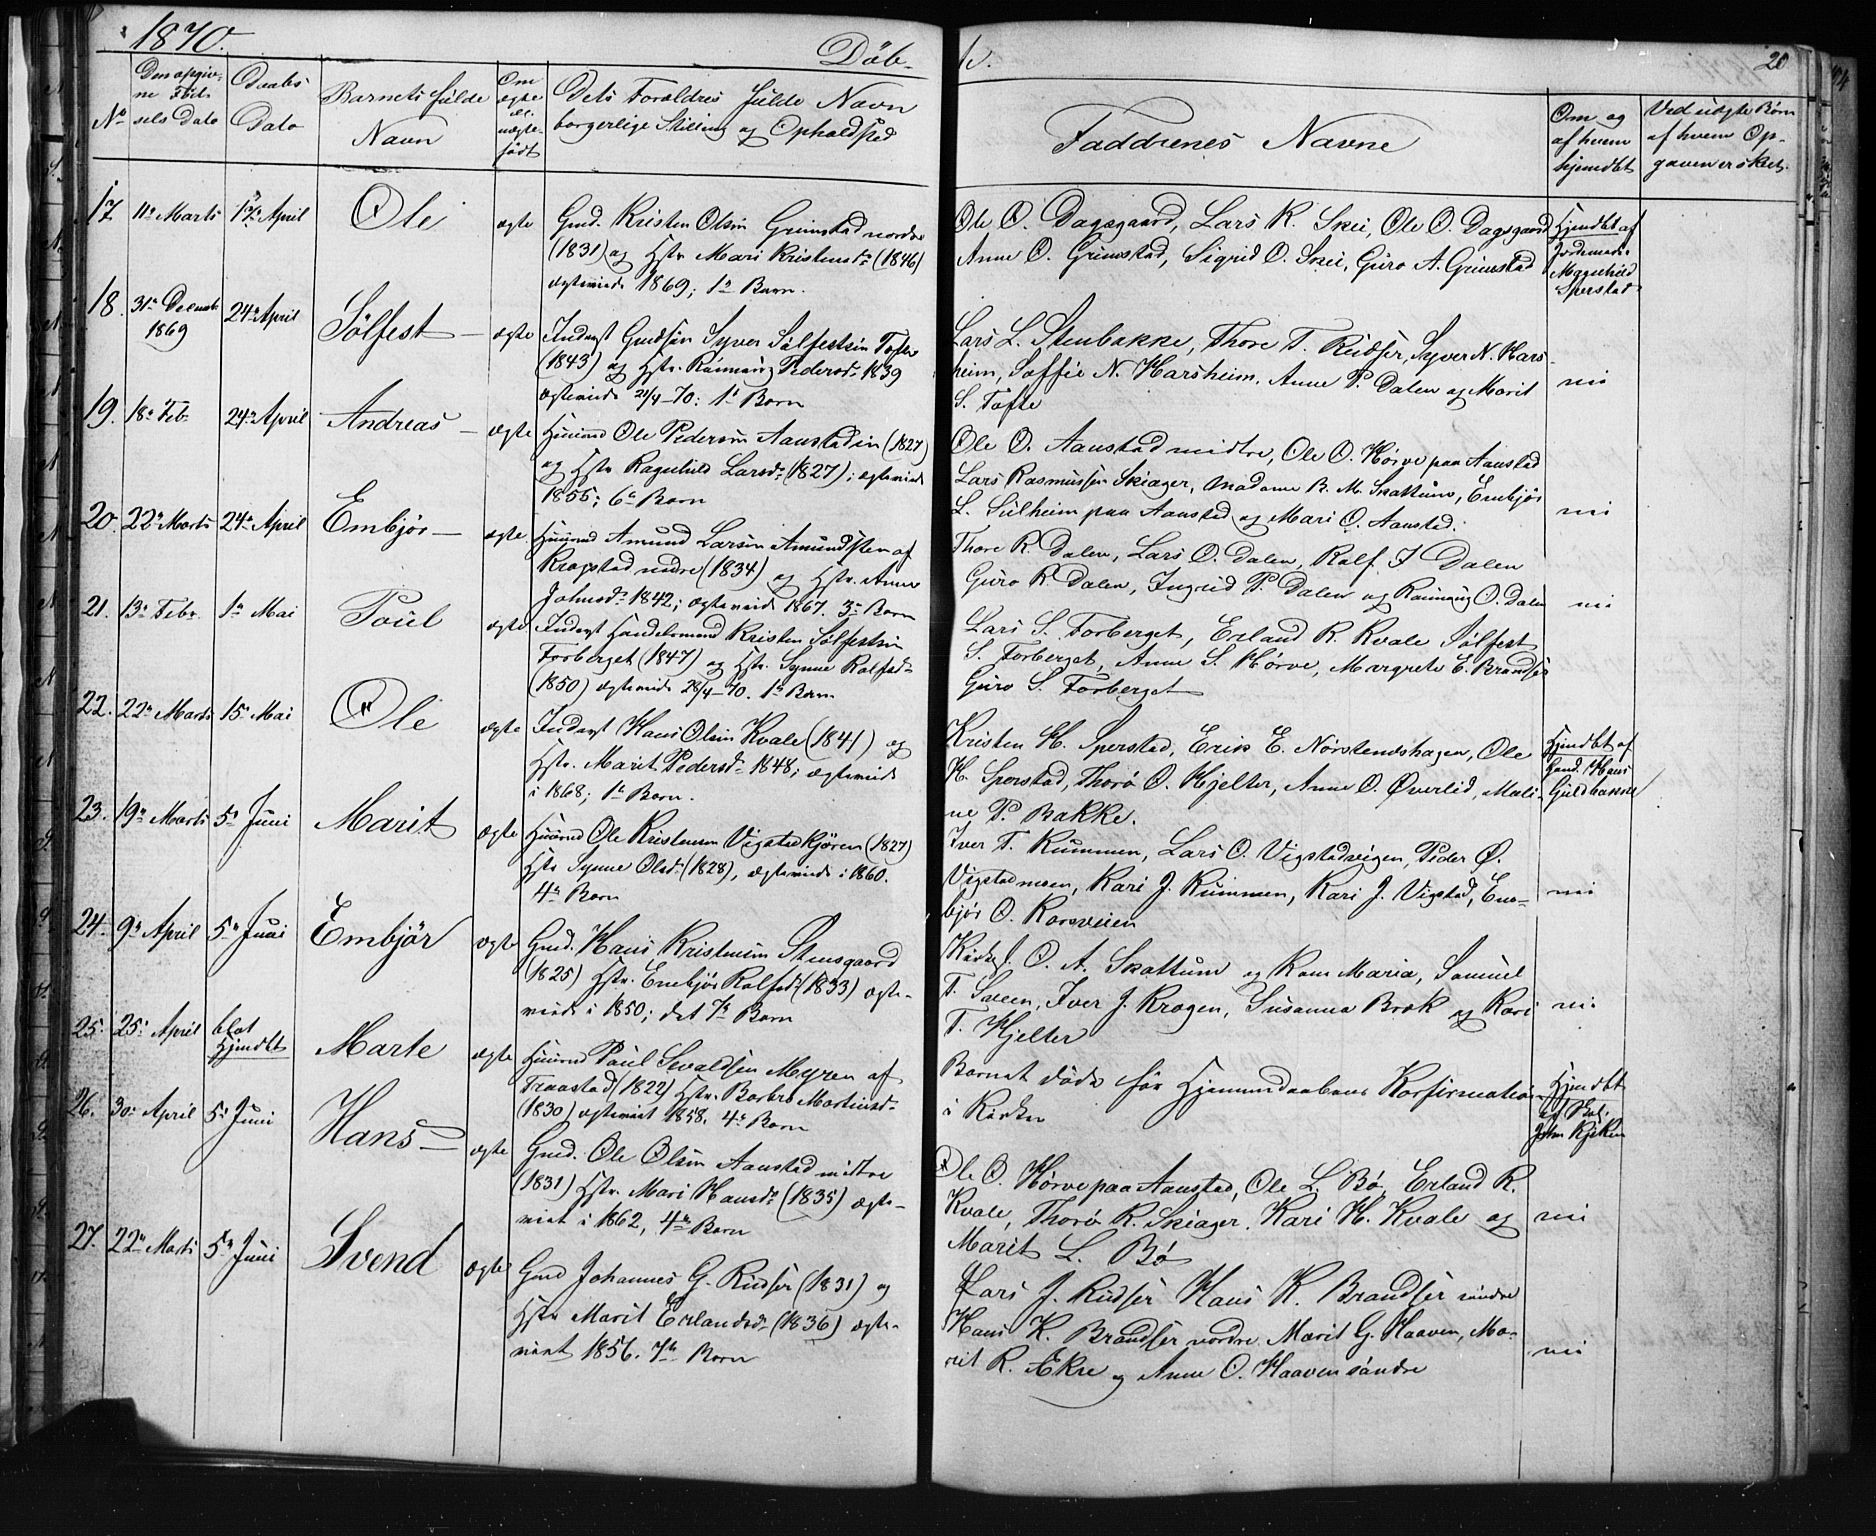 1870.
Döb-
te.
20
No
Den opgiv-
ne Föd-
sels Dato
Daabs
Dato
Barnets fulde
Navn
Om
ægte
el.
uægte
födt
Dets Forældres fulde Navn
borgerlige Stilling og Opholdsted
Faddrenes Navne
Om og
af hvem
hjemdbt
Ved uægte Börn
af hvem Op-
gaven er sket.
17 11te Marts 17de April Ole ægte
Gmd. Kristen Olsen Grimstad nordre
(1831) og Hstr. Mari Kristensd. (1846)
ægteviede 1869; 1te Barn.
Ole O. Dagsgaard, Lars K. Skei, Ole O. Dagsgaard
Anne O. Grimstad, Sigrid O. Skei, Guro A. Grimstad
Hjemdbt af
Jordemoder
Magnhild
Sperstad
18. 31te Decemb. 1869 24de April Sölfest ægte
Inderst Gmdsön Syver Sölfestsen Tofte
(1843) og Hstr. Rönnaug Pedersd. 1839
ægteviede 21/4-70; 1te Barn
Lars L. Stenbakke, Thore T. Rudser, Syver N. Hars-
heim, Soffie N. Harsheim, Anne P. Dalen og Marit
S. Tofte
nei
19. 18de Feb. 24de April Andreas ægte
Husmd Ole Pedersen Aanstadeie (1827)
og Hstr Ragnhild Larsd. (1827); ægteviede
1855; 6te Barn
Ole O. Aanstad midtre, Ole O. Hörve paa Aanstad
Lars Rasmussen Skiager, Madame B. M. Skattum, Embjör
L. Sulheim paa Aanstad og Mari O. Aanstad.
nei
20. 22de Marts 24de April Embjör ægte
Husmd Amund Larsen Amundsten af
Kragstad nedre (1834) og Hstr. Anne
Johnsd. 1842; ægteviede 1867. 3te Barn
Thore R. Dalen, Lars O. Dalen, Rolf. J Dalen
Guro R. Dalen, Ingrid P. Dalen og Rönnaug O. Dalen
nei
21. 13de Febr. 1te Mai Poul ægte
Inderst Handelsmand Kristen Sölfestsen
Forberget (1847) og Hstr. Synne Rolfsd.
(1850) ægteviede 28/4-70. 1te Barn
Lars S. Forberget, Erland R. Kvale Sölfest
S. Forberget, Anne S. Hörve, Margrete E. Brandser
Guro S. Forberget
22. 22de Marts 15de Mai Ole ægte
Inderst Hans Olsen Kvale (1841) og
Hstr. Marit Pedersd. 1848; ægteviede
i 1868; 1te Barn.
Kristen H. Sperstad, Erik E. Nörstenshagen, Ole
H. Sperstad, Thorö O. Hjelter, Anne O. Øverlid, Mali-
ne P. Bakke.
Hjemdbt af
Gmd. Hans
Guldbakke
23. 19de Marts 5te Juni Marit ægte
Husmd Ole Kristensen Vigstadkjören (1827)
Hstr Synne Olsd. (1828), ægteviede i 1860.
4te Barn
Iver T. Rummen, Lars O. Vigstadeigen, Peder Ø.
Vigstadmoen, Kari J. Rummen, Kari J. Vigstad, Em-
björ O. Korsveien
nei
24. 9de April 5te Juni Embjör ægte
Gmd. Hans Kristensen Stensgaard
(1825) Hstr. Embjör Rolfsd. (1833) ægte-
viede i 1850; det 7de Barn
Kirkes. O. A. Skattum og Kone Maria, Samuel
T. Sveen, Iver J. Kragen, Susanna Bræk og Kari
T. Hjelter
nei
25. 25de April blot
Hjemdbt Marte ægte
Husmd Paul Sevaldsen Myren af
Traastad (1822) Hstr. Barbro Mortensd.
(1830) ægteviet 1858. 4te Barn
Barnet döde för Hjemmedaabens Konfirmation
i Kirken
Hjemdbt
af Kbl.
John Kjöken
26. 30te April 5te Juni Hans ægte
Gmd. Ole Olsen Aanstad midtre
(1831) Hstr. Mari Hansd. (1835) ægte-
viet i 1862, 4de Barn
Ole O. Hörve paa Aanstad, Ole L. Bö, Erland R.
Kvale, Thorö R. Skiager, Kari H. Kvale og
Marit L. Bö
nei
27. 22de Marts 5te Juni Svend ægte
Gmd Johannes G. Rudser (1831) og
Hstr Marit Erlandsd. (1836) ægte-
viet 1856. 7de Barn
Lars J. Rudser Hans K. Brandser söndre
Hans K. Brandser nordre, Marit G. Haaven, Ma-
rit R. Ekre og Anne O. Haaven söndre
nei